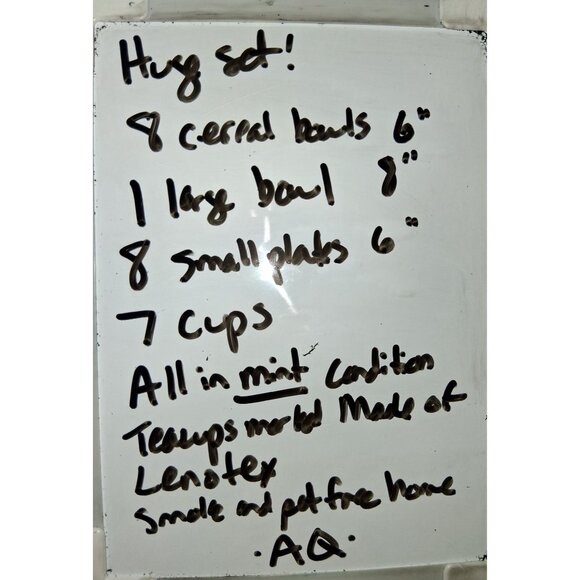 Huge set!
8 cereal bowls 6"
1 large bowl 8"
8 small plates 6"
7 cups
All in mint condition
Teacups marked Made of
Lenotex
Smoke and pet free home
·AQ·